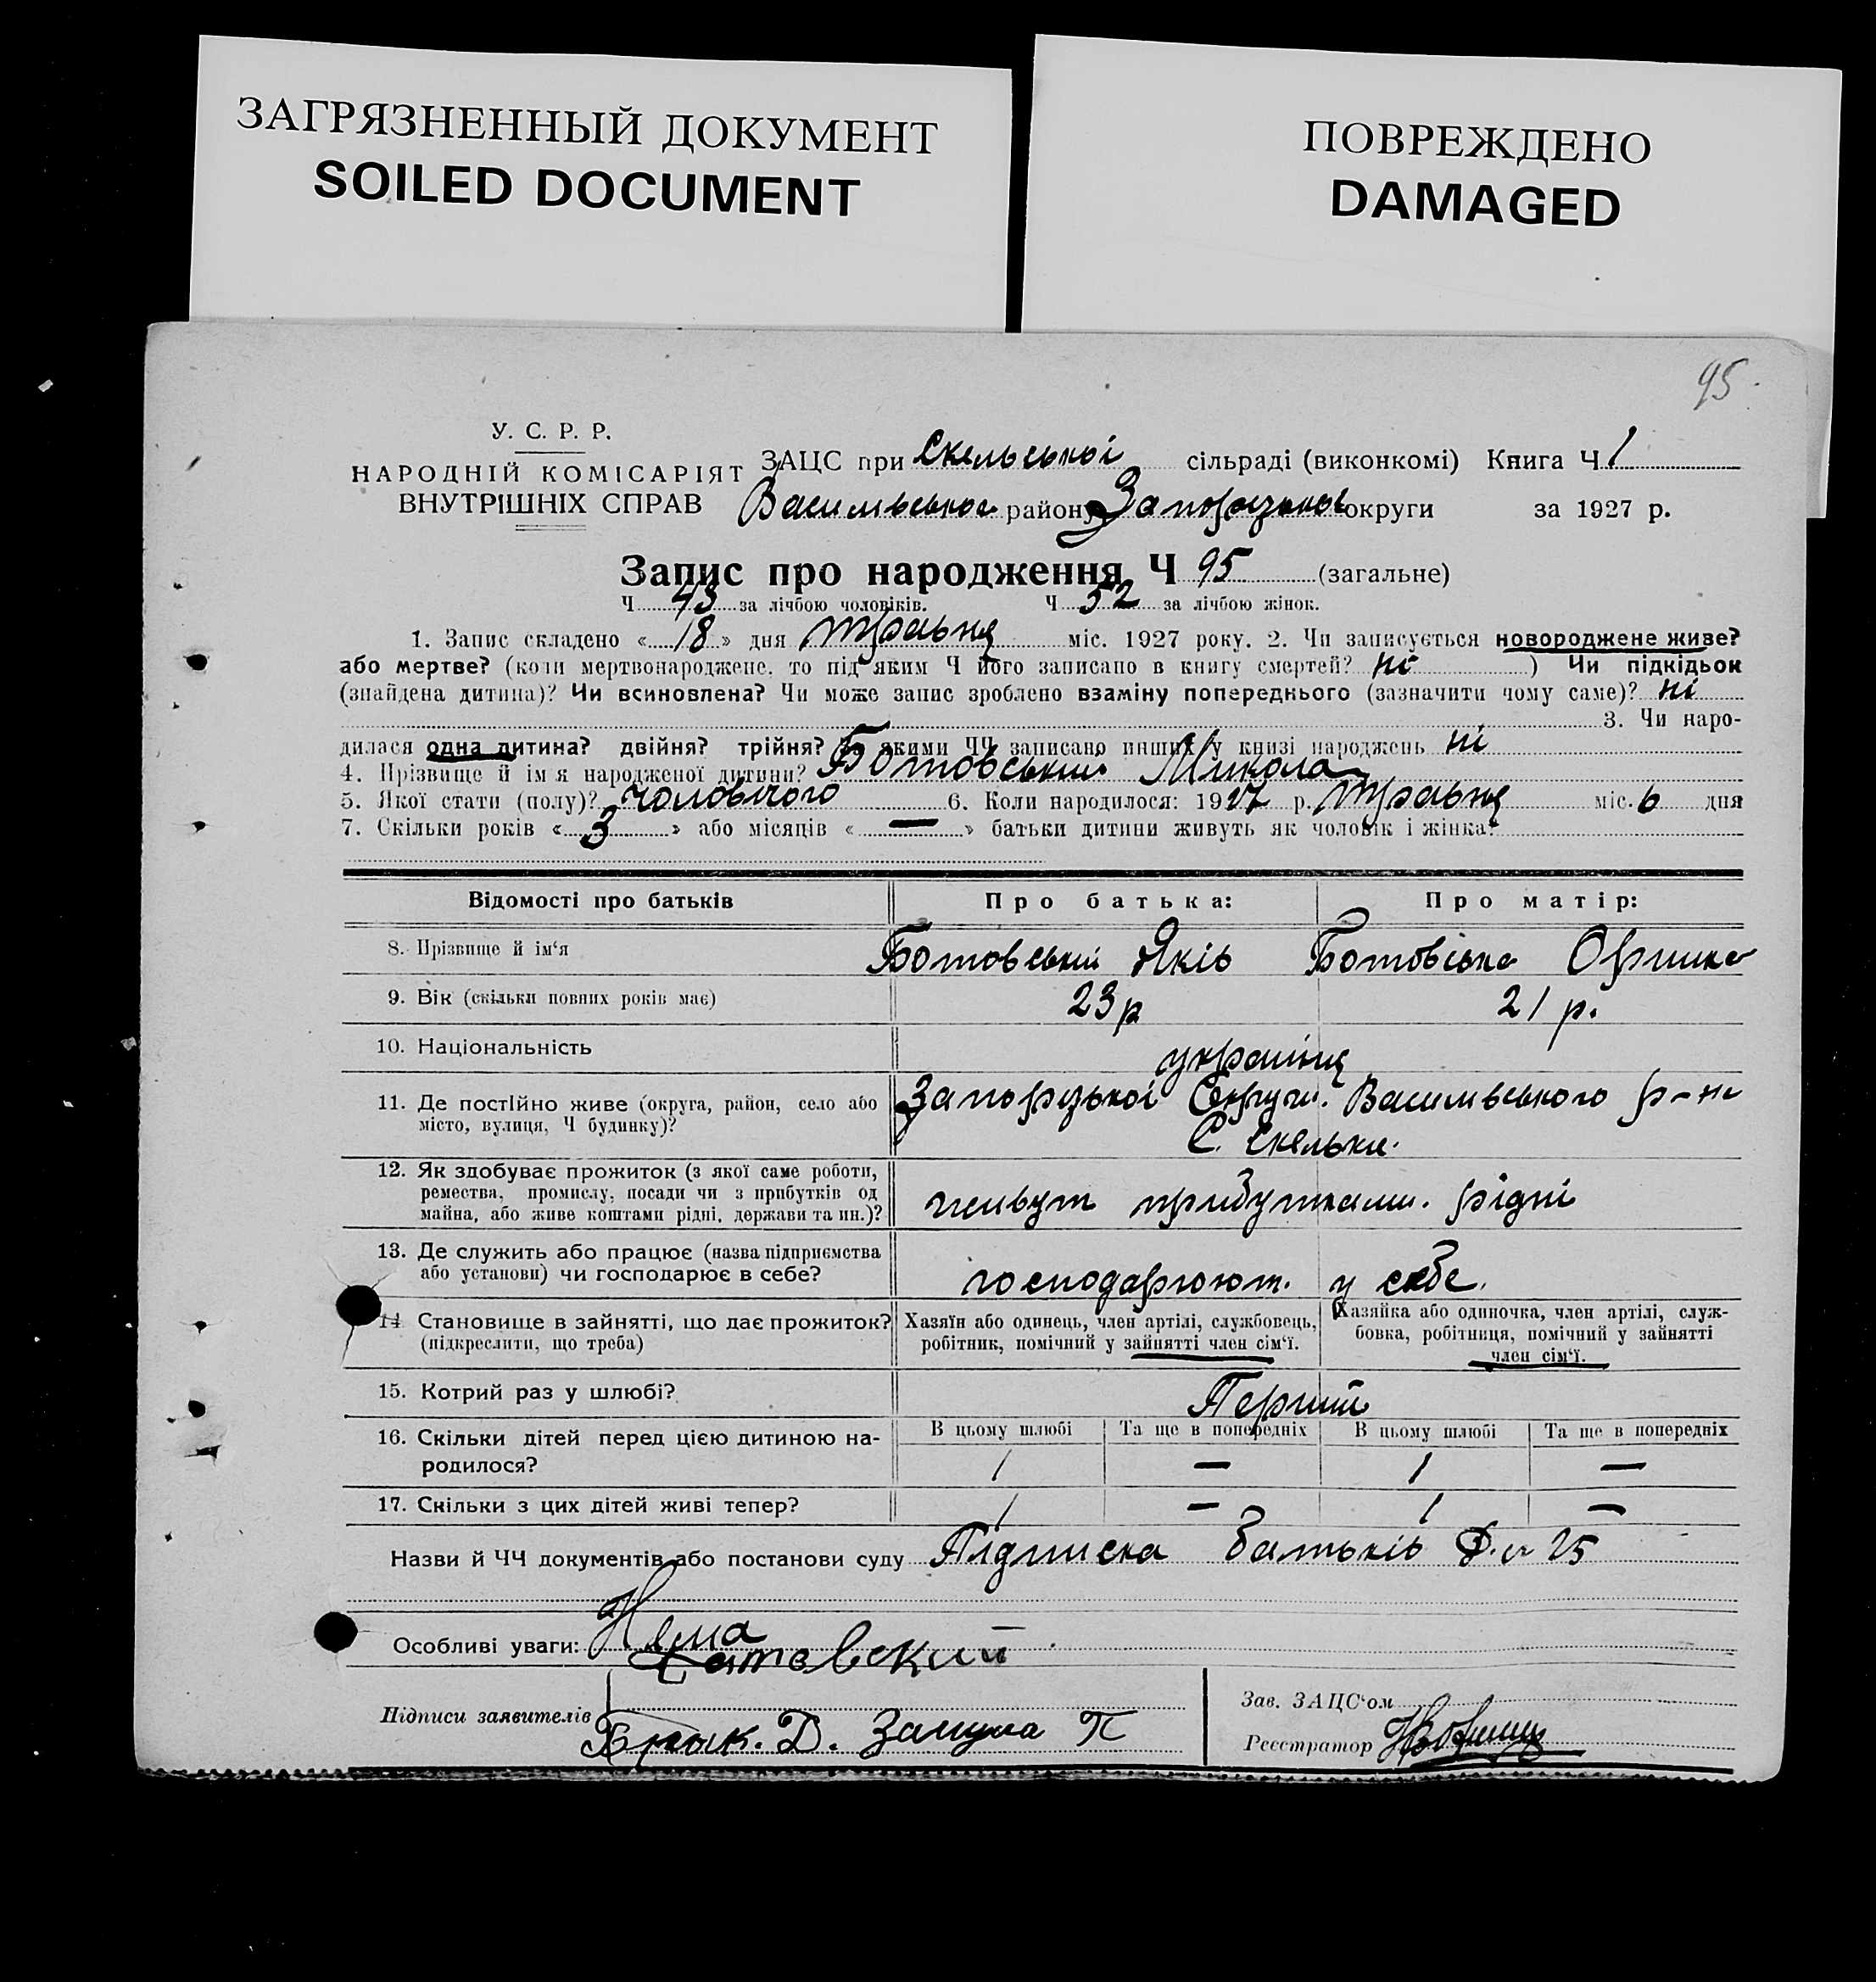 ЗАГРЯЗНЕННЫЙ ДОКУМЕНТ
SOILED DOCUMENT
ПОВРЕЖДЕНО
DAMAGED
95
У. С. Р. Р.
НАРОДНІЙ КОМІСАРІЯТ
ВНУТРІШНІХ СПРАВ
ЗАЦС при Скельської сільраді (виконкомі) Книга Ч 1
Васильвської району Запорізької округи за 1927 р.
Запис про народження Ч 95 (загальне)
Ч 43 за лічбою чоловіків. Ч 52 за лічбою жінок.
1. Запис складено « 18 » дня травня міс. 1927 року. 2. Чи записується новороджене живе?
або мертве? (коли мертвонароджене, то під яким Ч його записано в книгу смертей? ні ) Чи підкідьок
(знайдена дитина)? Чи всиновлена? Чи може запис зроблено взаміну попереднього (зазначити чому саме)? ні
3. Чи наро-
дилася одна дитина? двійня? трійня? За якими ЧЧ записано инших у книзі народжень ні
4. Прізвище й ім я народженої дитини? Ботовський Микола
5. Якої стати (полу)? чоловічого 6. Коли народилося: 1927 р. травня міс. 6 дня
7. Скільки років « 3 » або місяців « — » батьки дитини живуть як чоловік і жінка?
Відомості про батьків Про батька: Про матір:
8. Прізвище й ім‘я Ботовський Яків Ботовська Орина
9. Вік (скільки повних років має) 23 р 21 р.
10. Національність українці
11. Де постійно живе (округа, район, село або місто, вулиця, Ч будинку)? Запорізької Округи. Васильвського р-на
С. Скельки.
12. Як здобуває прожиток (з якої саме роботи,
ремества, промислу, посади чи з прибутків од
майна, або живе коштами рідні, держави та ин.)? живут прибутками. рідні
13. Де служить або працює (назва підприємства
або установи) чи господарює в себе? господарюют. у себе.
14 Становище в зайнятті, що дає прожиток?
(підкреслити, що треба)
Хазяїн або одинець, член артілі, службовець,
робітник, помічний у зайнятті член сім‘ї.
Хазяйка або одиночка, член артілі, служ-
бовка, робітниця, помічний у зайнятті
член сім‘ї.
15. Котрий раз у шлюбі? Перший
16. Скільки дітей перед цією дитиною на-
родилося?
В цьому шлюбі Та ще в попередніх В цьому шлюбі Та ще в попередніх
1 — 1 —
17. Скільки з цих дітей живі тепер? 1 — 1 —
Назви й ЧЧ документів або постанови суду Підписка батьків
Особливі уваги: Нема
Підписи заявителів
Зав. ЗАЦС‘ом
Реєстратор